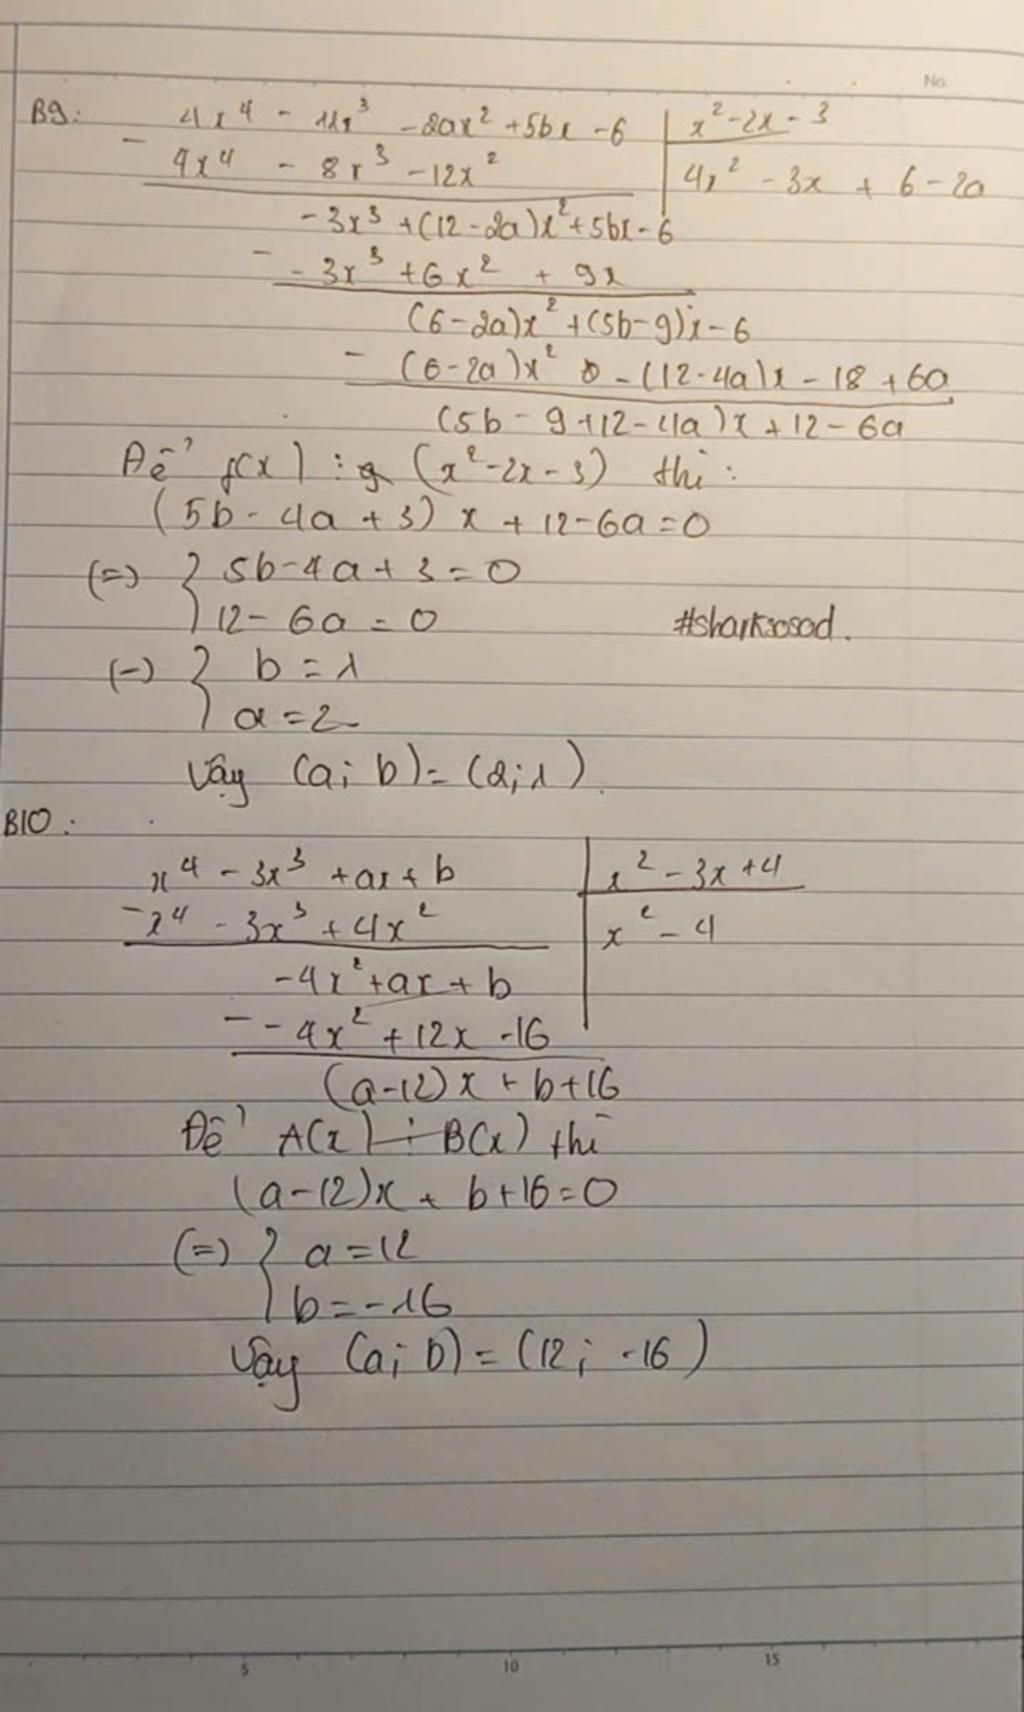 No.
B9: 4x⁴ - 11x³ - 2ax² + 5bx - 6 | x² - 2x - 3
- 4x⁴ - 8x³ - 12x² | 4x² - 3x + 6 - 2a
- 3x³ + (12 - 2a)x² + 5bx - 6
- - 3x³ + 6x² + 9x
(6 - 2a)x² + (5b - 9)x - 6
- (6 - 2a)x² - (12 - 4a)x - 18 + 6a
(5b - 9 + 12 - 4a)x + 12 - 6a
Để f(x) ⋮ (x² - 2x - 3) thì :
(5b - 4a + 3)x + 12 - 6a = 0
(=) { 5b - 4a + 3 = 0
12 - 6a = 0
#sharksosad.
(=) { b = 1
a = 2
Vậy (a; b) = (2; 1).
B10 :
x⁴ - 3x³ + ax + b | x² - 3x + 4
- x⁴ - 3x³ + 4x² | x² - 4
- 4x² + ax + b
- - 4x² + 12x - 16
(a - 12)x + b + 16
Để A(x) ⋮ B(x) thì
(a - 12)x + b + 16 = 0
(=) { a = 12
b = -16
Vậy (a; b) = (12; -16)
5 10 15